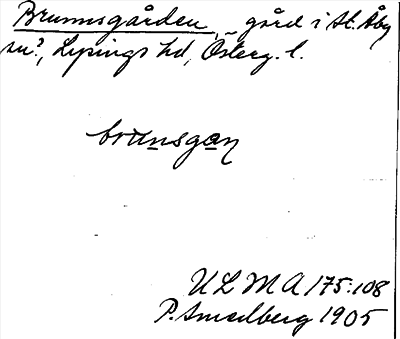 Brunnsgården, gård i St. Åby
sn?, Lysings hd, Österg. l.
brunsgan
ULMA 175:108
P. Smedberg 1905